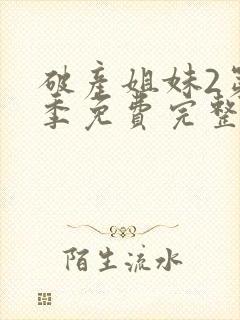 破産姐妹2第
季免費完整
陌生流水